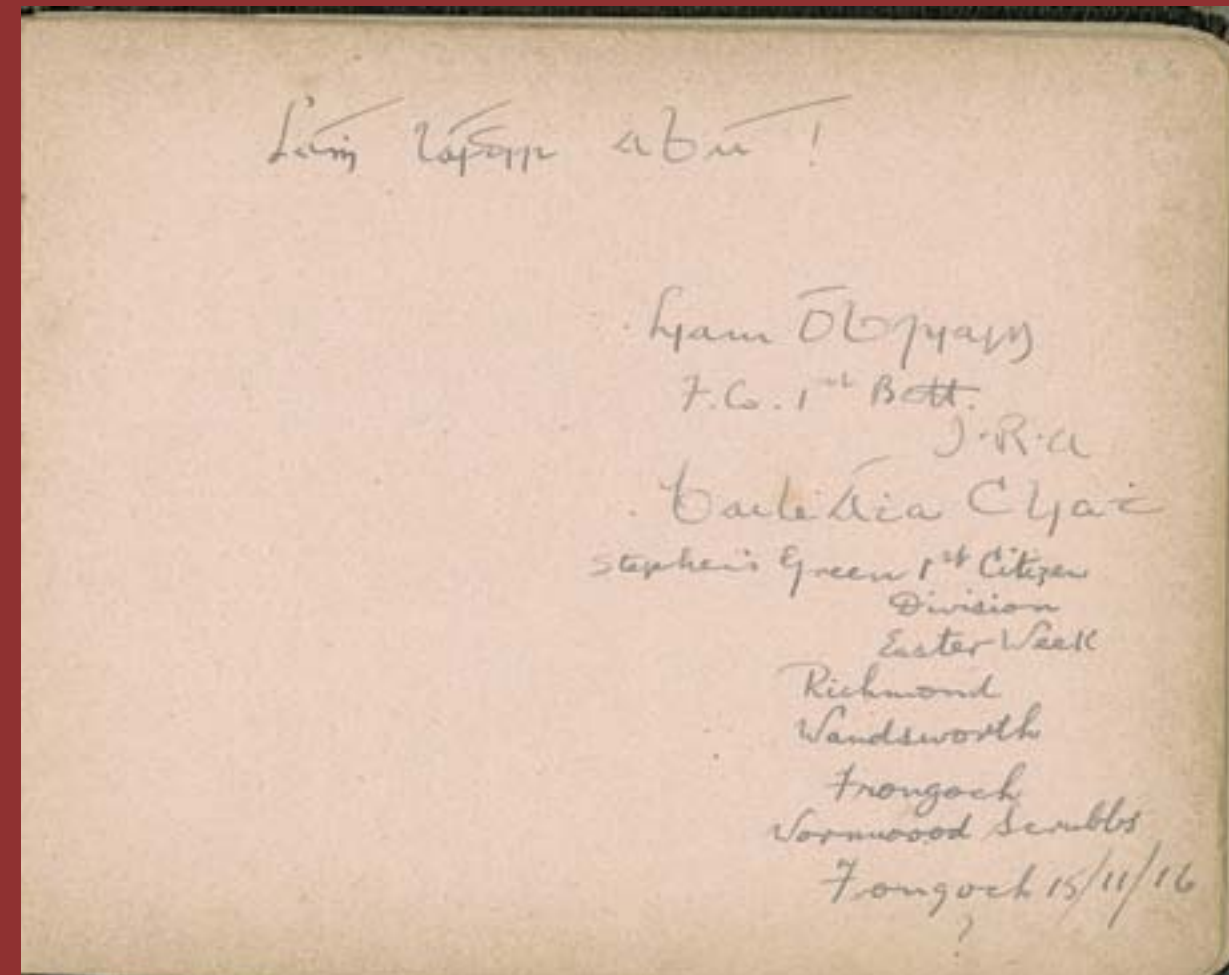 Láṁ láidir abú !
Liam Ó Briain
F. Co. 1st Batt.
I.R.A
Baile Áṫa Cliaṫ
Stephen's Green 1st Citizen
Division
Easter Week
Richmond
Wandsworth
Frongoch
Wormwood Scrubbs
Frongoch 15/11/16
?